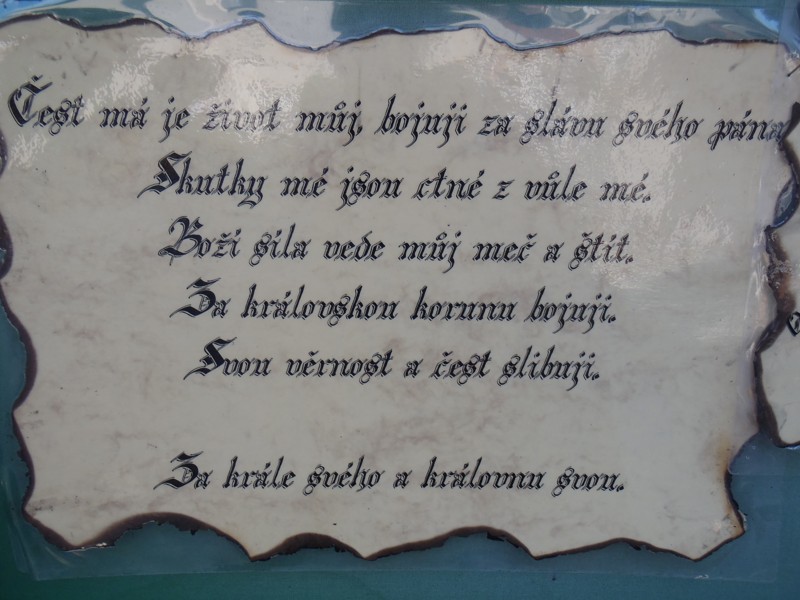 Čest má je život můj, bojuji za slávu svého pána
Skutky mé jsou ctné z vůle mé.
Boží síla vede můj meč a štít.
Za královskou korunu bojuji.
Svou věrnost a čest slibuji.
Za krále svého a královnu svou.